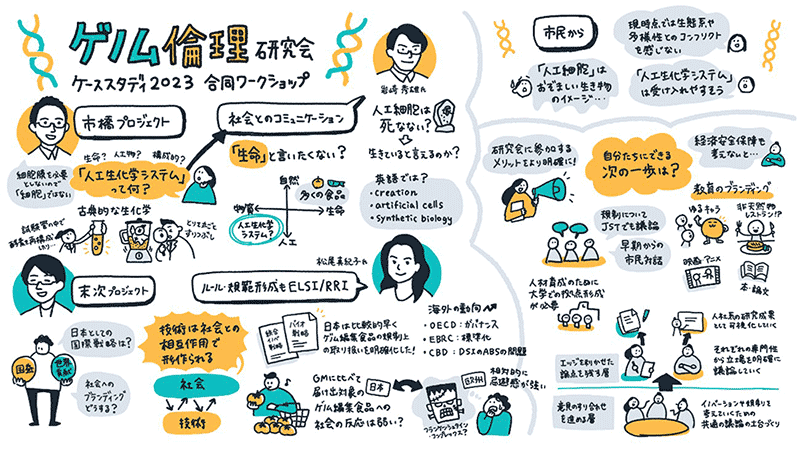 ゲノム倫理研究会
ケーススタディ2023 合同ワークショップ
岩崎 秀雄氏
市橋プロジェクト
社会とのコミュニケーション
人工細胞は
死なない?
生きていると言えるのか?
細胞膜を必要
としないので
「細胞」ではない
生命? 人工物? 構成的?
「人工生化学システム」
って何?
古典的な生化学
試験管の中で
酵素を再構成
とりだして
すりつぶし
「生命」と言いたくない?
自然
多くの食品
物質
生命
人工生化学
システム?
人工
英語では?
・creation
・artificial cells
・synthetic biology
末次プロジェクト
日本としての
国際戦略は?
国益
世界
貢献
社会への
ブランディング
どうする?
技術は社会との
相互作用で
形作られる
社会
技術
松尾真紀子氏
ルール・規範形成もELSI/RRI
統合
イノベ
戦略
バイオ
戦略
日本は比較的早く
ゲノム編集食品の規制上
の取り扱いを明確にした!
GMに比べて
届出対象の
ゲノム編集食品への
社会の反応は弱い?
海外の動向
・OECD:ガバナンス
・EBRC:標準化
・CBD:DSIのABSの問題
日本
欧州
相対的に
忌避感が強い
フランケンシュタイン
・コンプレックス?
市民から
現時点では生態系や
多様性とのコンフリクト
を感じない
「人工細胞」は
おぞましい生き物
のイメージ…
「人工生化学システム」
は受け入れやすそう
研究会に参加する
メリットをより明確に!
自分たちにできる
次の一歩は?
経済安全保障も
考えないと…
教育のブランディング
ゆるキャラ
非天然物
レストラン!?
映画 アニメ
本・論文
規制について
JSTでも議論
早期からの
市民対話
人材育成のために
大学での拠点形成
が必要
人社系の研究成果
として可視化していく
エッジをきかせた
論点を残す層
それぞれの専門性
から立場を明確に
議論していく
意見のすり合わせ
を進める層
イノベーションや規制を
考えていくための
共通の議論の土台づくり